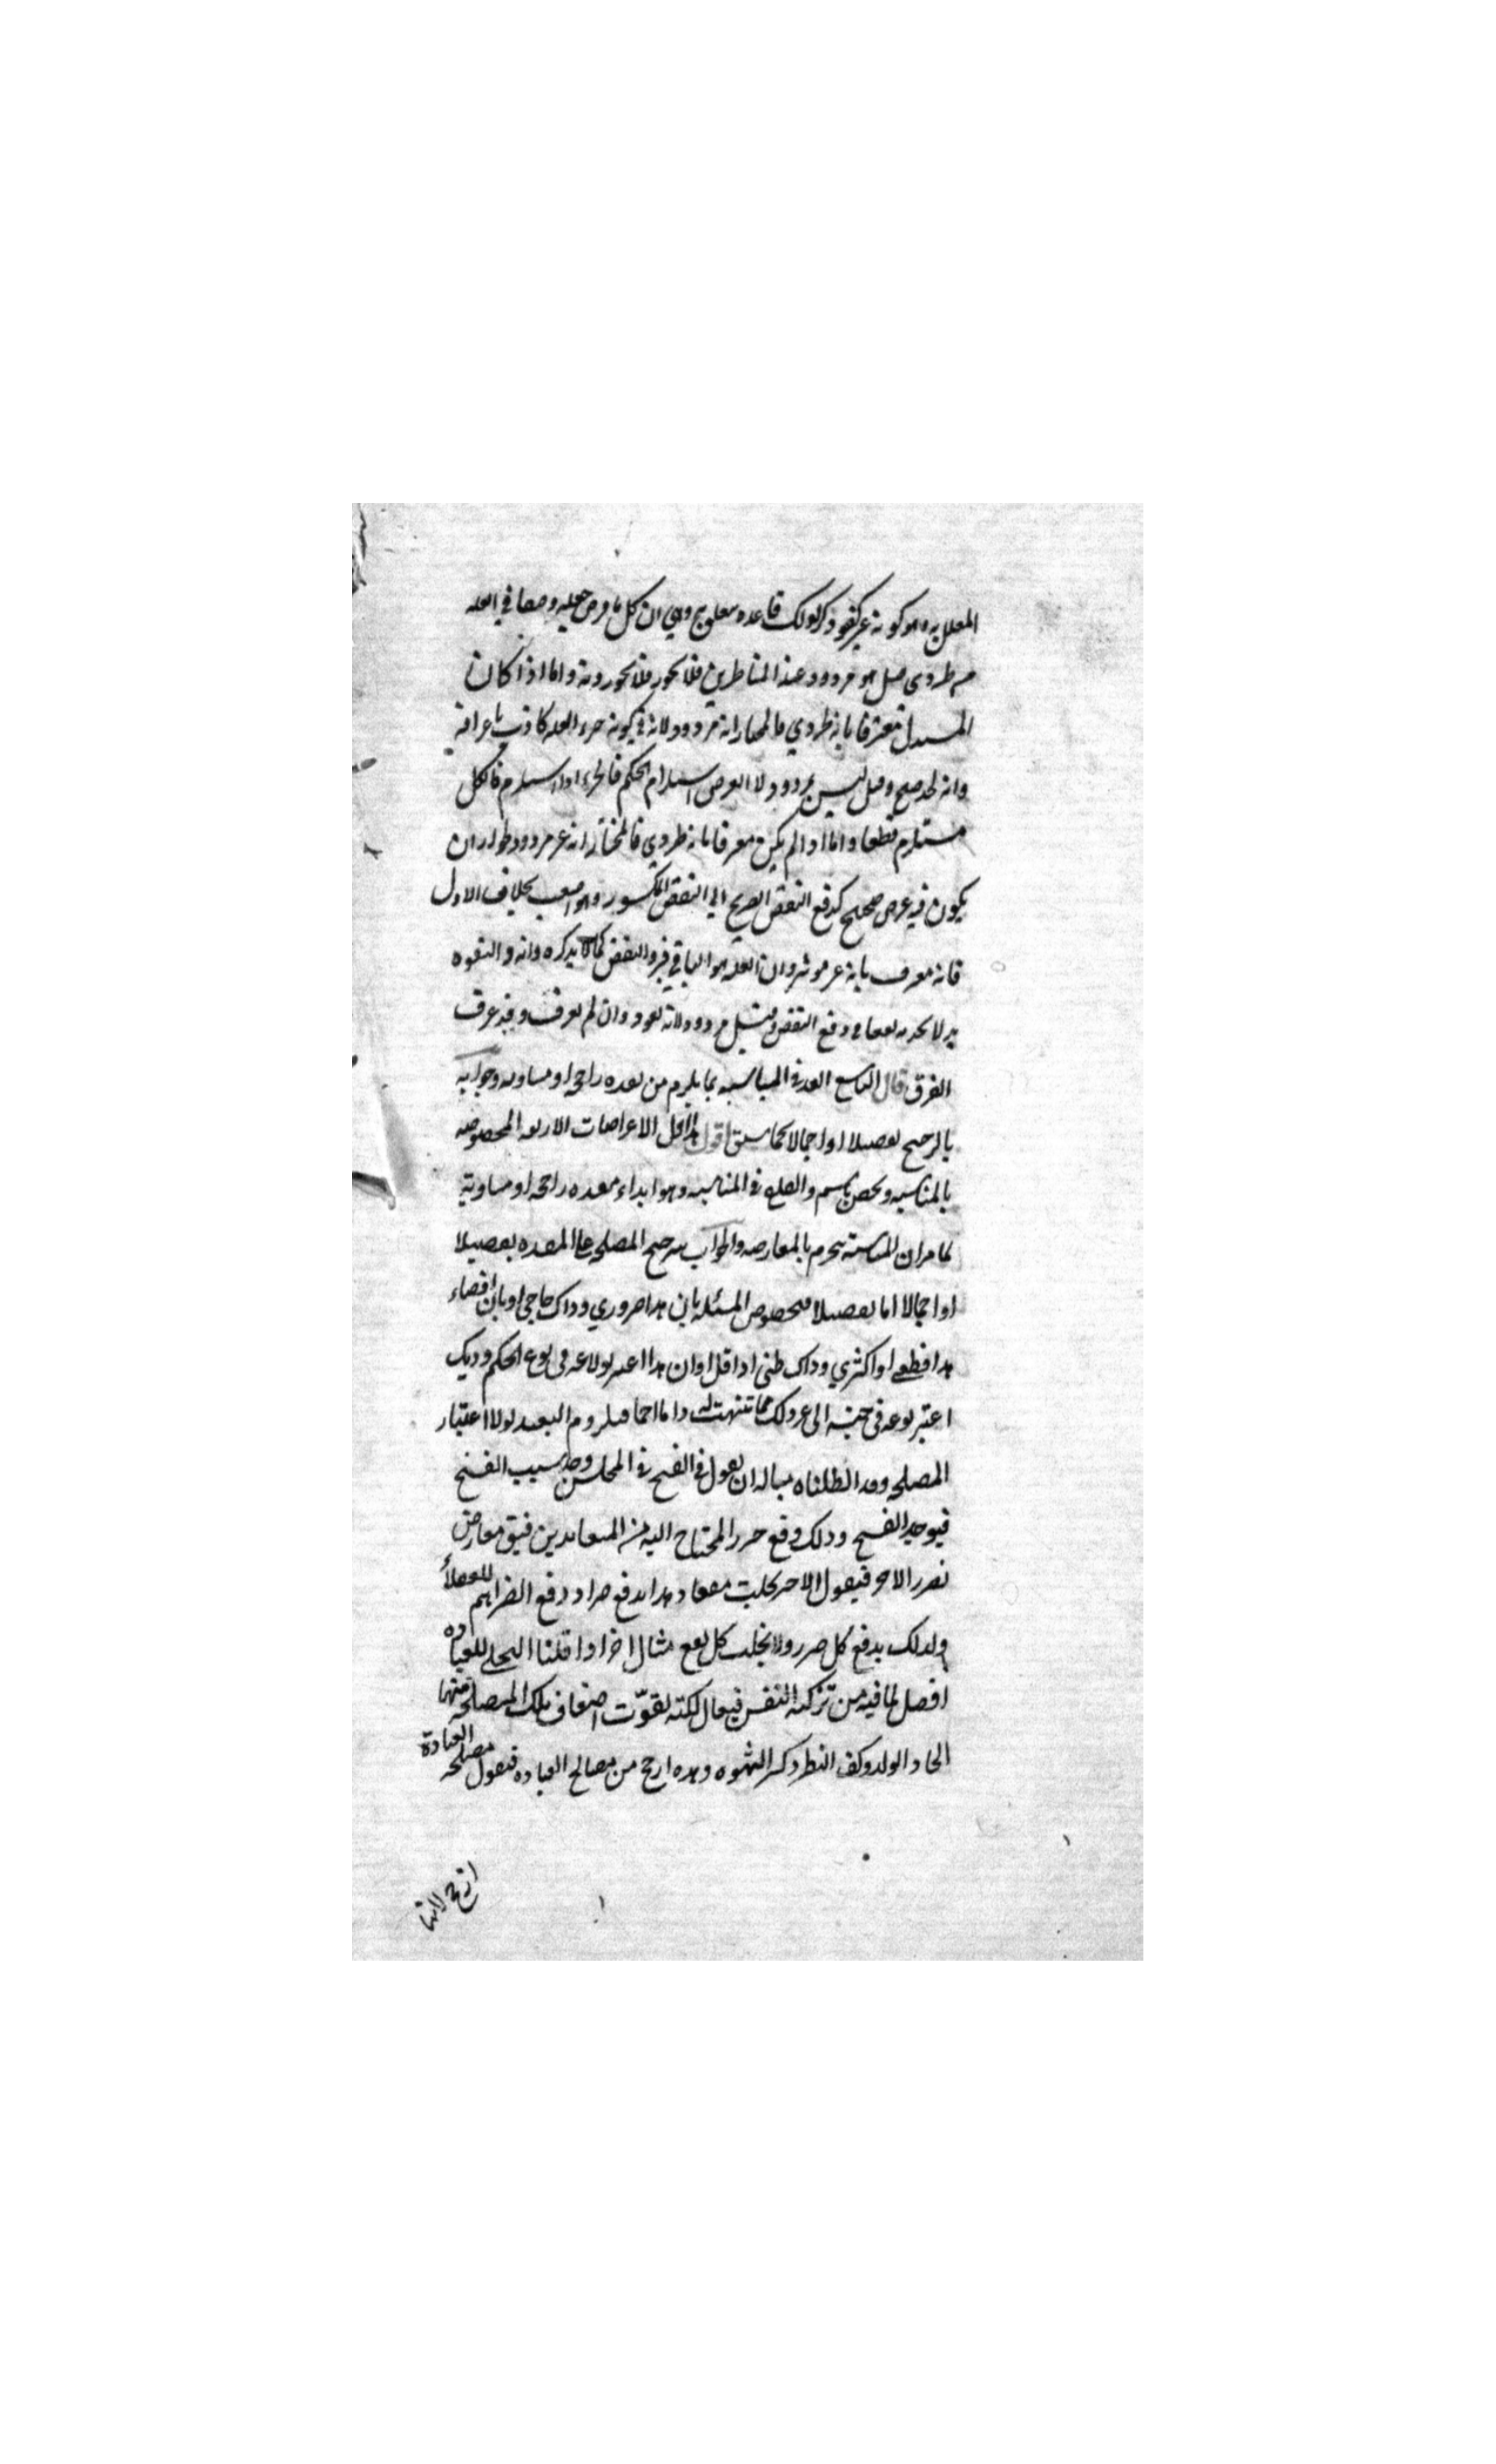 المعلل به وهو كونه غير كفو وذكر لذلك قاعده معلومه وهي ان كل ما فرض جعله وصفا في العله
من طردي هل هو مردود عند المناظرين فلا يجوز فلا يجوزونه واما اذا كان
المستدل معترفا بانه طردي فالمختار انه مردود لانه في كونه جزء العله كاذب باعترافه
وانه لحد صح وقيل ليس بمردود لان الغرض استلزام الحكم فالجزء اذا استلزم فالكل
مستلزم قطعا واما اذا لم يكن معترفا بانه طردي فالمختار انه غير مردود لجواز ان
يكون فيه غرض صحيح كدفع النقض الصريح الي النقض المكسور وهو اصعب بخلاف الاول
فانه معترف بانه غير موثر وان العله هو الباقي فيرد النقض كما لا يذكره وانه والتفوه
به لا يجديه نفعا في دفع النقض وقيل مردود لانه لغو وان لم يعرف وقد عرف
الفرق قال التاسع القدح في المناسبه بما يلزم من مفسده راجحه او مساويه وجوابه
بالترجيح تفصيلا او اجمالا كما سبق اقول هذا اول الاعتراضات الاربعه المخصوصه
بالمناسبه ويخص باسم والقدح في المناسبه وهو ابداء مفسده راجحه او مساويه
لما مر ان المناسبه تنخرم بالمعارضه والجواب بترجيح المصلحه على المفسده تفصيلا
او اجمالا اما تفصيلا فبخصوص المسئله بان هذا ضروري وذاك حاجي او بان افضاء
هذا قطعي او اكثري وذاك ظني او اقلي او ان هذا اعتبر نوعه في نوع الحكم وذلك
اعتبر نوعه في جنسه الى غير ذلك مما تنبهت له واما اجمالا فبلزوم التعبد لولا اعتبار
المصلحه وقد ابطلناه مثاله ان يقول في الفسخ في المجلس وجد سبب الفسخ
فيوجد الفسخ وذلك دفع ضرر المحتاج اليه من المتعاقدين فيقول معارض
بضرر الاخر فيقول الاخر يجلب نفعا وهذا يدفع ضرارا ودفع الضرر اهم للعقلاء
ولذلك يدفع كل ضرر ولا يجلب كل نفع مثال اخر اذا قلنا التخلي للعباده
افضل لما فيه من تزكيه النفس فيقال لكنه تفوت اضعاف تلك المصلحه منها
ايجاد الولد وكف النظر وكسر الشهوه وهذه ارجح من مصالح العباده فيقول مصلحه العبادة
ارجح لانها